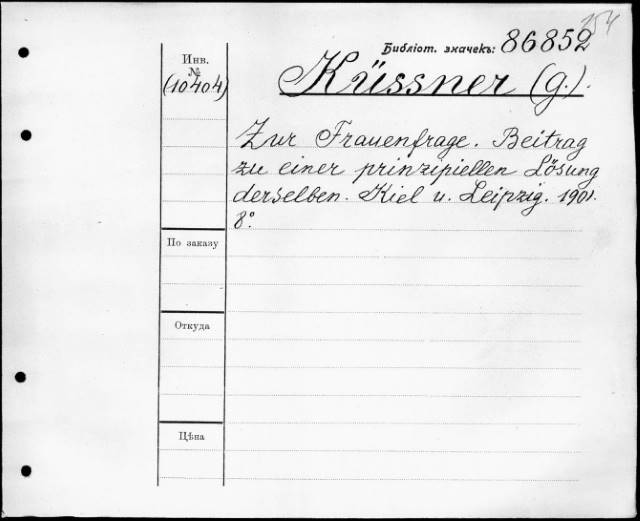 254
Библіот. значекъ: 86852
Инв.
№
(10404)
Küssner (G.).
Zur Frauenfrage. Beitrag
zu einer prinzipiellen Lösung
derselben. Kiel u. Leipzig. 1901.
8°.
По заказу
Откуда
Цѣна